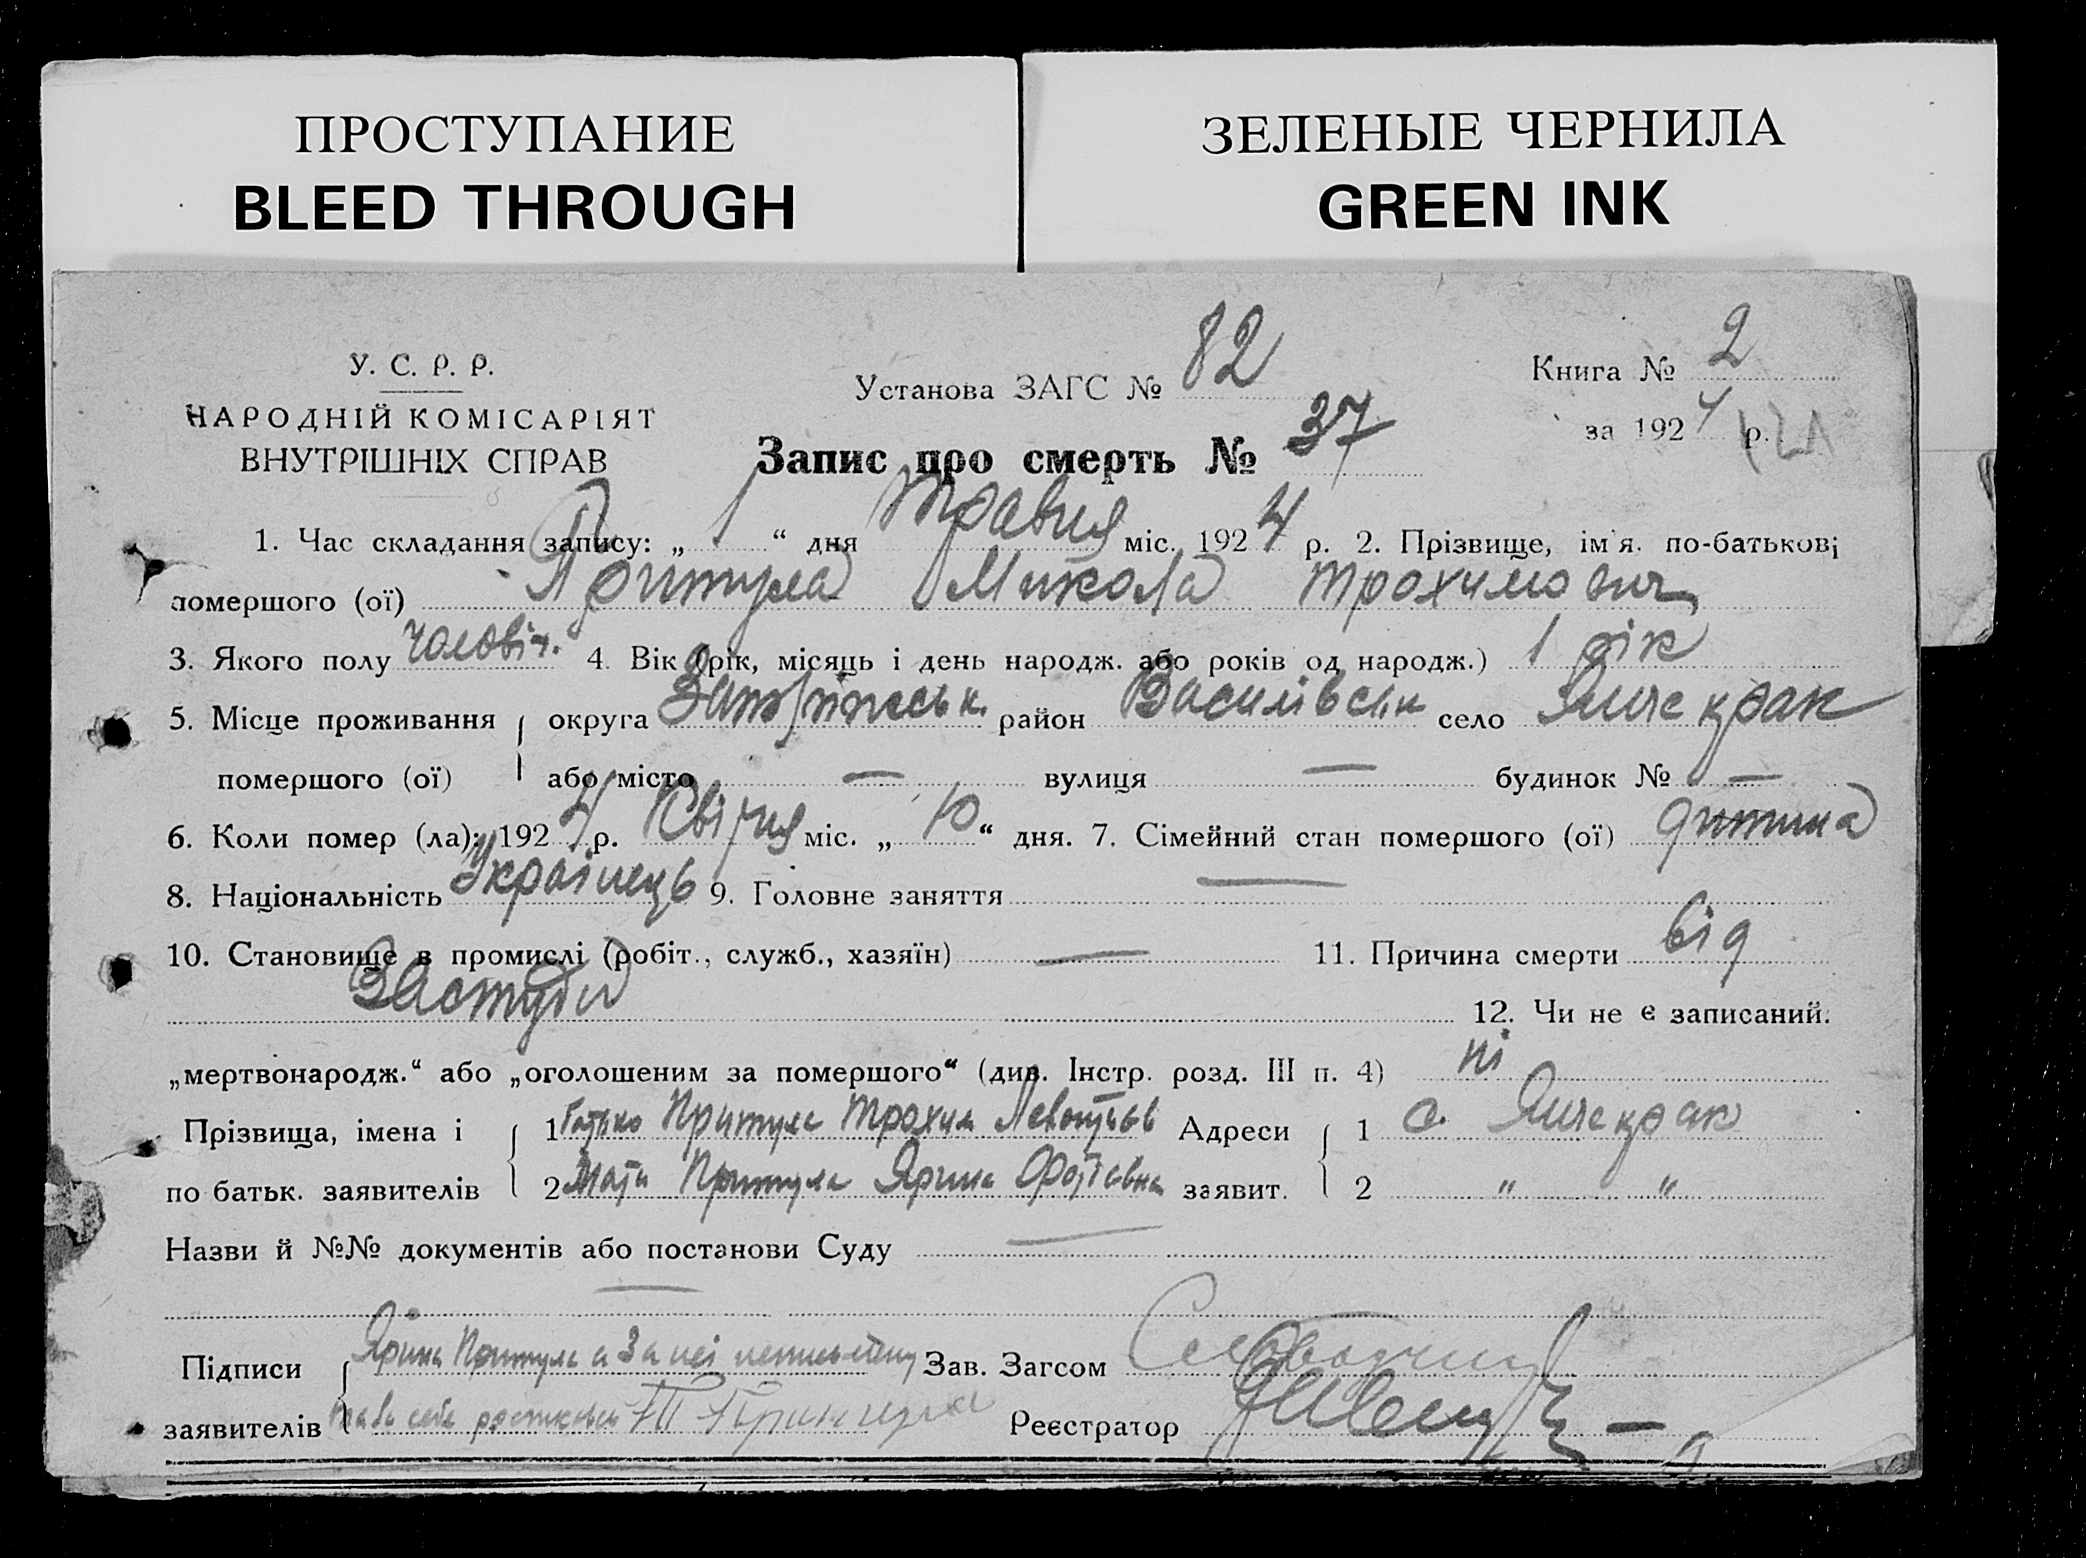 ПРОСТУПАНИЕ
BLEED THROUGH
ЗЕЛЕНЫЕ ЧЕРНИЛА
GREEN INK
У. С. Р. Р.
НАРОДНІЙ КОМІСАРІЯТ
ВНУТРІШНІХ СПРАВ
Установа ЗАГС № 82
Книга № 2
за 1924 р.
Запис про смерть № 37
1. Час складання запису: „ 1 “ дня травня міс. 1924 р. 2. Прізвище, ім'я. по-батькові
помершого (ої) Притула Микола Трохимович
3. Якого полу чоловіч. 4. Вік (рік, місяць і день народж. або років од народж.) 1 рік
5. Місце проживання округа Запоріжськ. район Василівськ село Янчекрак
помершого (ої) або місто — вулиця — будинок № —
6. Коли помер (ла): 1924 р. Квітня міс. „ 10 “ дня. 7. Сімейний стан помершого (ої) дитина
8. Національність Українець 9. Головне заняття —
10. Становище в промислі (робіт., служб., хазяїн) — 11. Причина смерти від
Застуди
12. Чи не є записаний.
„мертвонародж.“ або „оголошеним за помершого“ (див. Інстр. розд. III п. 4) ні
Прізвища, імена і 1 Батько Притула Трохим Адреси 1 с. Янчекрак
по батьк. заявителів 2 Мати Притула Ярина заявит. 2 " "
Назви й №№ документів або постанови Суду —
—
Підписи Ярина Притула а За неї Зав. Загсом
заявителів Реєстратор